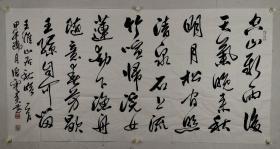 空山新雨後
天氣晚来秋
明月松间照
清泉石上流
竹喧歸浣女
蓮動下漁舟
随意春芳歇
王孫自可留
王維山居秋暝
甲午
月